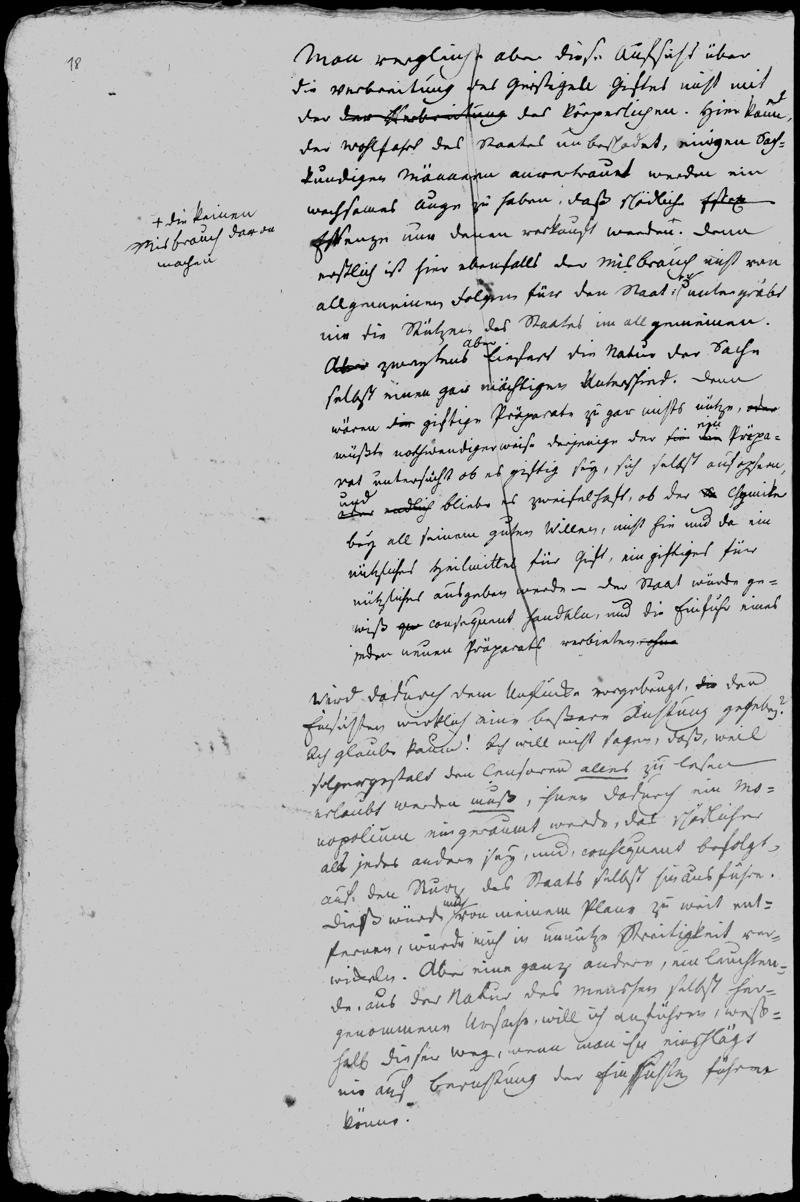 18
Man vergleiche aber diese Aufsicht über
die Verbreitung des geistigen Giftes nicht mit
der der Verbreitung des körperlichen. Hier kann,
der Wohlfahrt des Staates unbeschadet, einigen Sach-
kundigen Männern anvertraut werden ein
wachsames Auge zu haben, daß schädliche
Essenzen nur denen verkauft werden +. Denn
+ die keinen
Misbrauch davon
machen
erstlich ist hier ebenfalls der Misbrauch nicht von
allgemeinen Folgen für den Staat; er untergräbt
nie die Stützen des Staates im allgemeinen.
Aber zweytens aber liefert die Natur der Sache
selbst einen gar mächtigen Unterschied. Denn
wären die giftige Präparate zu gar nichts nütze, oder
müßte nothwendigerweise derjenige der ein Präpa-
rat untersucht ob es giftig sey, sich selbst aufopfern,
und
oder endlich bliebe es zweifelhaft, ob der Chymiker
bey all seinem guten Willen, nicht hie und da ein
nützliches Heilmittel für Gift, ein giftiges für
nützliches ausgeben werde – der Staat würde ge-
wiß consequent handeln, und die Einfuhr eines
jeden neuen Präparats verbieten ohne
Wird dadurch dem Unglücke vorgebeugt, die den
Einsichten wirklich eine bessere Richtung gegeben?
Ich glaube kaum! Ich will nicht sagen, daß, weil
solchergestalt den Censoren alles zu lesen
erlaubt werden muß, ihnen dadurch ein Mo-
nopolium eingeräumt werde, das schädlicher
als jedes andere sey, und, consequent befolgt,
auf den Sturz des Staats selbst hinausführe.
Dieß würde mich von meinem Plane zu weit ent-
fernen, würde mich in unnütze Streitigkeit ver-
wickeln. Aber eine ganz andere, einleuchten-
de, aus der Natur des Menschen selbst her-
genommene Ursache, will ich anführen, weß-
halb dieser Weg, wenn man ihn einschlägt
nie auf Berichtung der Einsichten führen
könne.